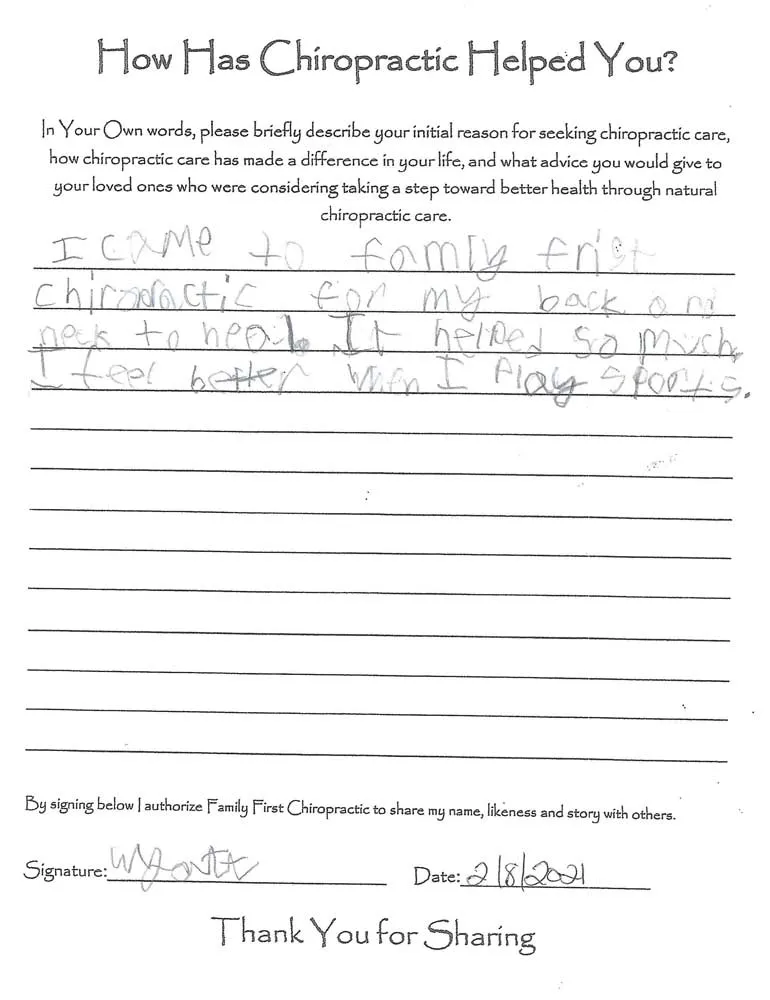 How Has Chiropractic Helped You?
In Your Own words, please briefly describe your initial reason for seeking chiropractic care,
how chiropractic care has made a difference in your life, and what advice you would give to
your loved ones who were considering taking a step toward better health through natural
chiropractic care.
I came to family frist
chiropractic for my back and
neck to heal. It helped so much.
I feel better when I play sports.
By signing below I authorize Family First Chiropractic to share my name, likeness and story with others.
Signature: Wyatt Date: 2/8/2021
Thank You for Sharing